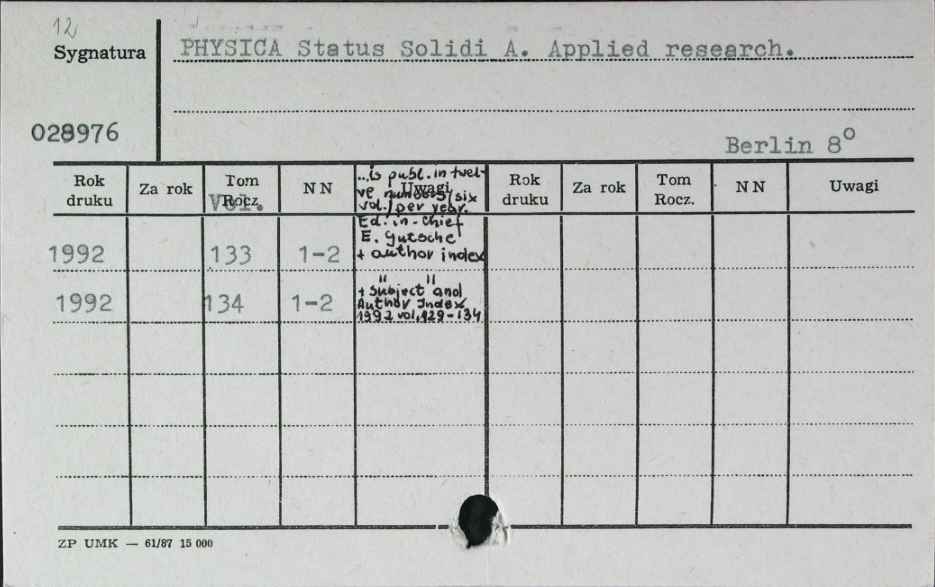 12
Sygnatura
PHYSICA Status Solidi A. Applied research.
028976
Berlin 8º
Rok druku Za rok Tom Rocz. Vol. NN Uwagi Rok druku Za rok Tom Rocz. NN Uwagi
...is publ. in twel-
ve numbers/six
vol./per year.
Ed. in-Chief
E. Gutsche
1992 133 1-2 + author index
" "
+ Subject and
1992 134 1-2 Author Index
1992 vol. 129-134
ZP UMK — 61/87 15 000